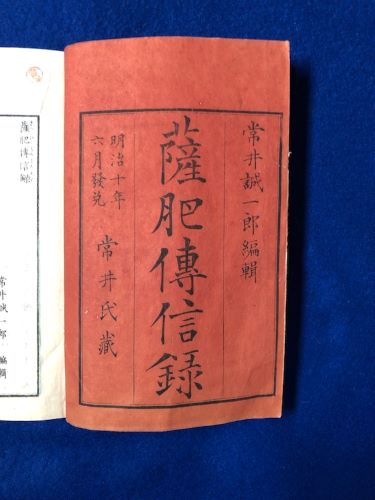 常井誠一郎編輯
薩肥傳信録
明治十年
六月發兌
常井氏藏
薩肥傳信録
常井誠一郎 編輯